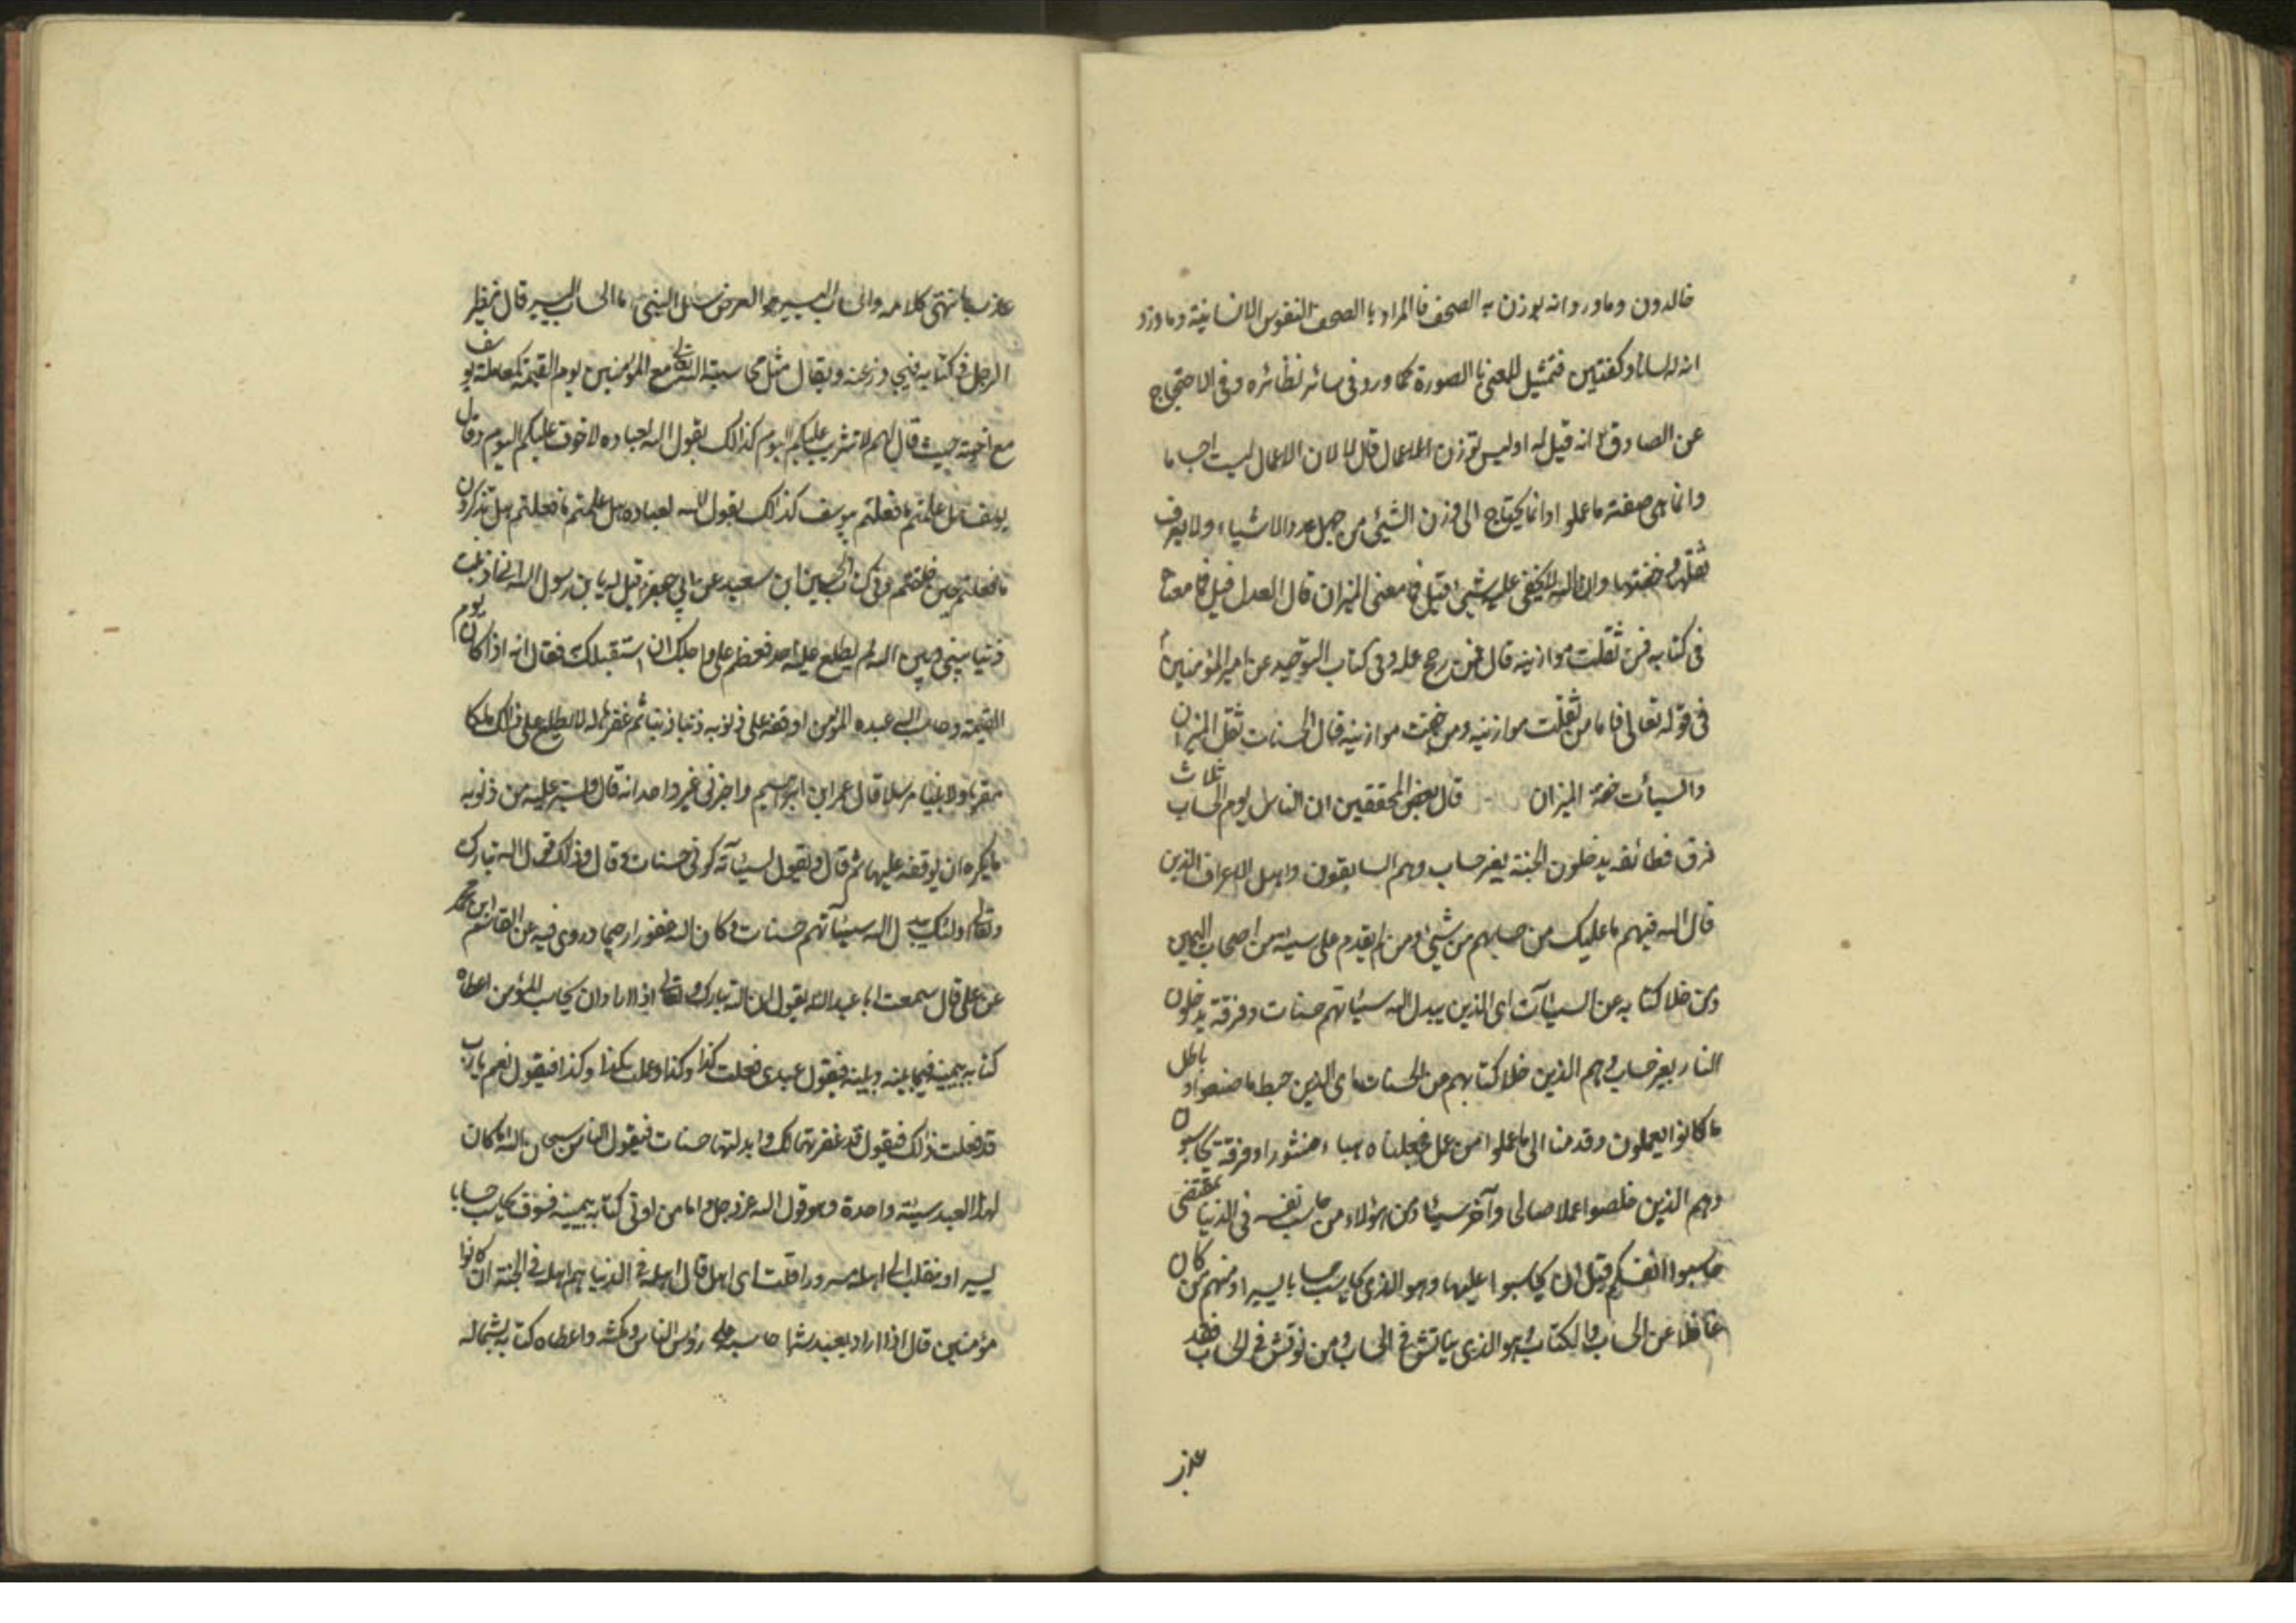 خالدون وما ورد انه يوزن به الصحف فالمراد بالصحف النفوس الانسانية وما ورد
انه له لسانا وكفتين فتمثيل للمعنى بالصورة كما ورد فى سائر نظائره وفى الاحتجاج
عن الصادق انه قيل له اوليس توزن الاعمال قال لا لان الاعمال ليست اجساما
وانما هى صفة ما عملوا وانما يحتاج الى وزن الشيئ من جهل عدد الاشياء ولا يعرف
ثقلها وخفتها وان الله لا يخفى عليه شيئ قيل فما معنى الميزان قال العدل قيل فما معناه
فى كتابه فمن ثقلت موازينه قال فمن رجح عمله وفى كتاب التوحيد عن امير المؤمنين
فى قوله تعالى فاما من ثقلت موازينه ومن خفت موازينه قال الحسنات ثقل الميزان
والسيأت خفة الميزان قال بعض المحققين ان الناس يوم الحساب ثلاث
فرق فطائفه يدخلون الجنة بغير حساب وهم السابقون واهل الاعراف الذين
قال الله فيهم ما عليك من حسابهم من شيئ ومن لم يقدم على سيئة من اصحاب اليمين
ومن خلا كتابه عن السيئآت اى الذين يبدل الله سيئاتهم حسنات وفرقة يدخلون
النار بغير حساب وهم الذين خلا كتابهم من الحسنات اى الذين حبط ما صنعوا وباطل
ما كانوا يعملون وقدمنا الى ما عملوا من عمل فجعلناه هباء منثورا وفرقة يحاسبون
وهم الذين خلصوا عملا صالحا وآخر سيئا ومن هؤلاء من حاسب نفسه فى الدنيا بمقتضى
حاسبوا انفسكم قبل ان يحاسبوا عليها وهو الذى يحاسب حسابا يسيرا ومنهم من كان
غافلا عن الحساب والكتاب وهو الذى يناقش فى الحساب ومن نوقش فى الحساب فقد
عذب
عذب انتهى كلامه والحساب اليسير هو العرض سئل النبى ما الحساب اليسير قال ينظر
الرجل فى كتابه فيتجاوز عنه ويقال مثل محاسبة الله تعالى مع المؤمنين يوم القيمة كمعاملة يوسف
مع اخوته حيث قال لهم لا تثريب عليكم اليوم كذلك يقول الله لعباده لا خوف عليكم اليوم وقال
يوسف هل علمتم ما فعلتم بيوسف كذلك يقول الله لعباده هل علمتم ما فعلتم هل تذكرون
ما فعلتم حين خلفتم وفى كتاب الحسين ابن سعيد عن ابي جعفر قيل له يا بن رسول الله انا اذنبت
ذنبا بينى وبين الله لم يطلع عليه احد فعظم على واجلك ان استقبلك فقال انه اذا كان يوم
القيمة وحاسب الله عبده المؤمن اوقفه على ذنوبه ذنبا ذنبا ثم غفرها له لا يطلع على ذلك ملكا
مقربا ولا نبيا مرسلا قال عمر ابن ابراهيم واخبرنى غير واحد انه قال ويستر عليه من ذنوبه
ما يكره ان يوقفه عليها ثم قال ويقول لسيئآته كونى حسنات وقال وذلك قول الله تبارك
وتعالى اولئك يبدل الله سيئآتهم حسنات وكان الله غفورا رحيما وروى فيه عن القاسم ابن محمد
عن على قال سمعت ابا عبد الله يقول ان الله تبارك وتعالى اذا اراد ان يحاسب المؤمن اعطاه
كتابه بيمينه فيما بينه وبينه فيقول عبدى فعلت كذا وكذا وعملت كذا وكذا فيقول نعم يا رب
قد فعلت ذلك فيقول قد غفرتها لك وابدلتها حسنات فيقول الناس سبحان الله اما كان
لهذا العبد سيئة واحدة وهو قول الله عز وجل واما من اوتى كتابه بيمينه فسوف يحاسب حسابا
يسيرا وينقلب الى اهله مسرورا قلت اى اهل قال اهله فى الدنيا هم اهله فى الجنة ان كانوا
مؤمنين قال اذا اراد بعبد شرا حاسبه على رؤس الناس وبكته واعطاه كتابه بشماله